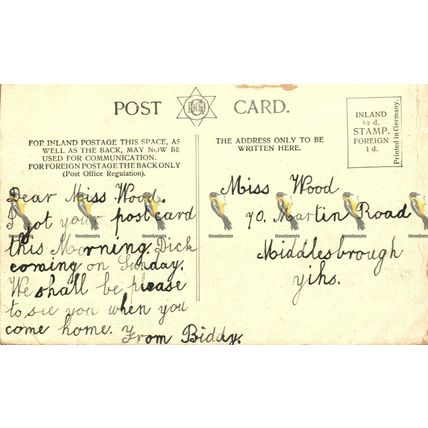 POST CARD.
FOR INLAND POSTAGE THIS SPACE, AS
WELL AS THE BACK, MAY NOW BE
USED FOR COMMUNICATION.
FOR FOREIGN POSTAGE THE BACK ONLY
(Post Office Regulation).
THE ADDRESS ONLY TO BE
WRITTEN HERE.
INLAND
½ d.
STAMP.
FOREIGN
1 d.
Printed in Germany.
Dear Miss Wood.
I got your postcard
this Moorning. Dick
coming on Sunday.
We shall be please
to see you when you
come home. From Biddy.
Miss Wood
70. Martin Road
Middlesbrough
yihs.